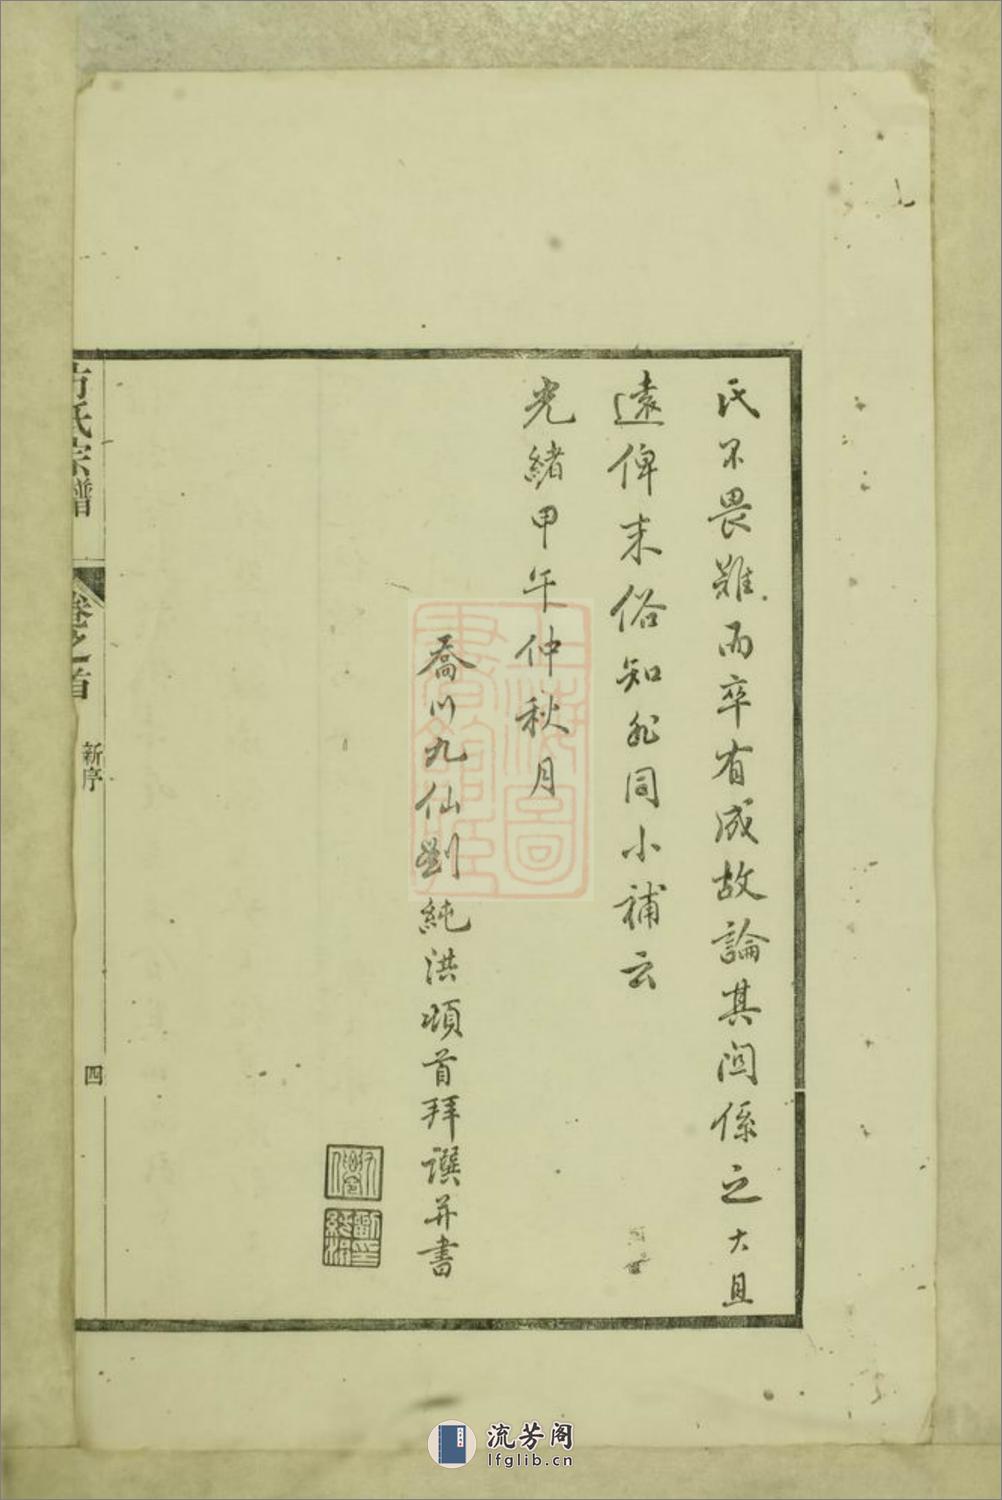 氏不畏難而卒有成故論其関係之大且
遠俾末俗知所同小補云
光緒甲午仲秋月
喬川九仙劉純洪頓首拜譔并書
方氏宗譜
卷之首
新序
四
上海圖書館藏
流芳阁
lfglib.cn